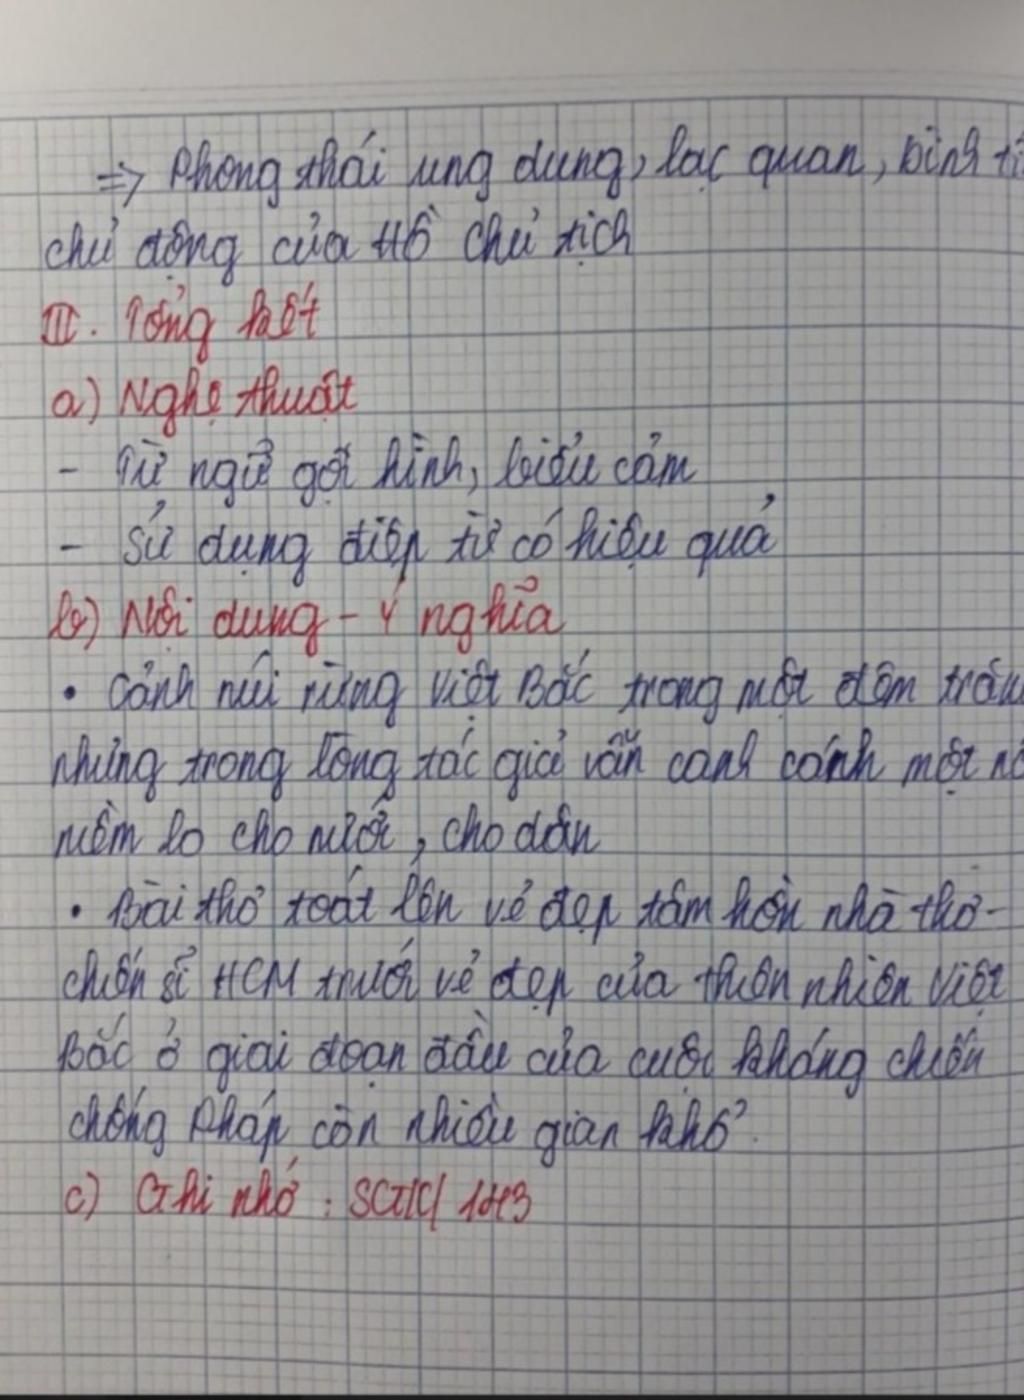 => Phong thái ung dung, lạc quan, bình tĩ
chủ động của Hồ Chủ tịch
III. Tổng kết
a) Nghệ thuật
- Từ ngữ gợi hình, biểu cảm
- Sử dụng điệp từ có hiệu quả
b) Nội dung - Ý nghĩa
• Cảnh núi rừng Việt Bắc trong một đêm trăn
nhưng trong lòng tác giả vẫn canh cánh một nỗ
niềm lo cho nước, cho dân
• Bài thơ toát lên vẻ đẹp tâm hồn nhà thơ -
chiến sĩ HCM trước vẻ đẹp của thiên nhiên Việt
Bắc ở giai đoạn đầu của cuộc kháng chiến
chống Pháp còn nhiều gian khổ.
c) Ghi nhớ : SGK/ 143